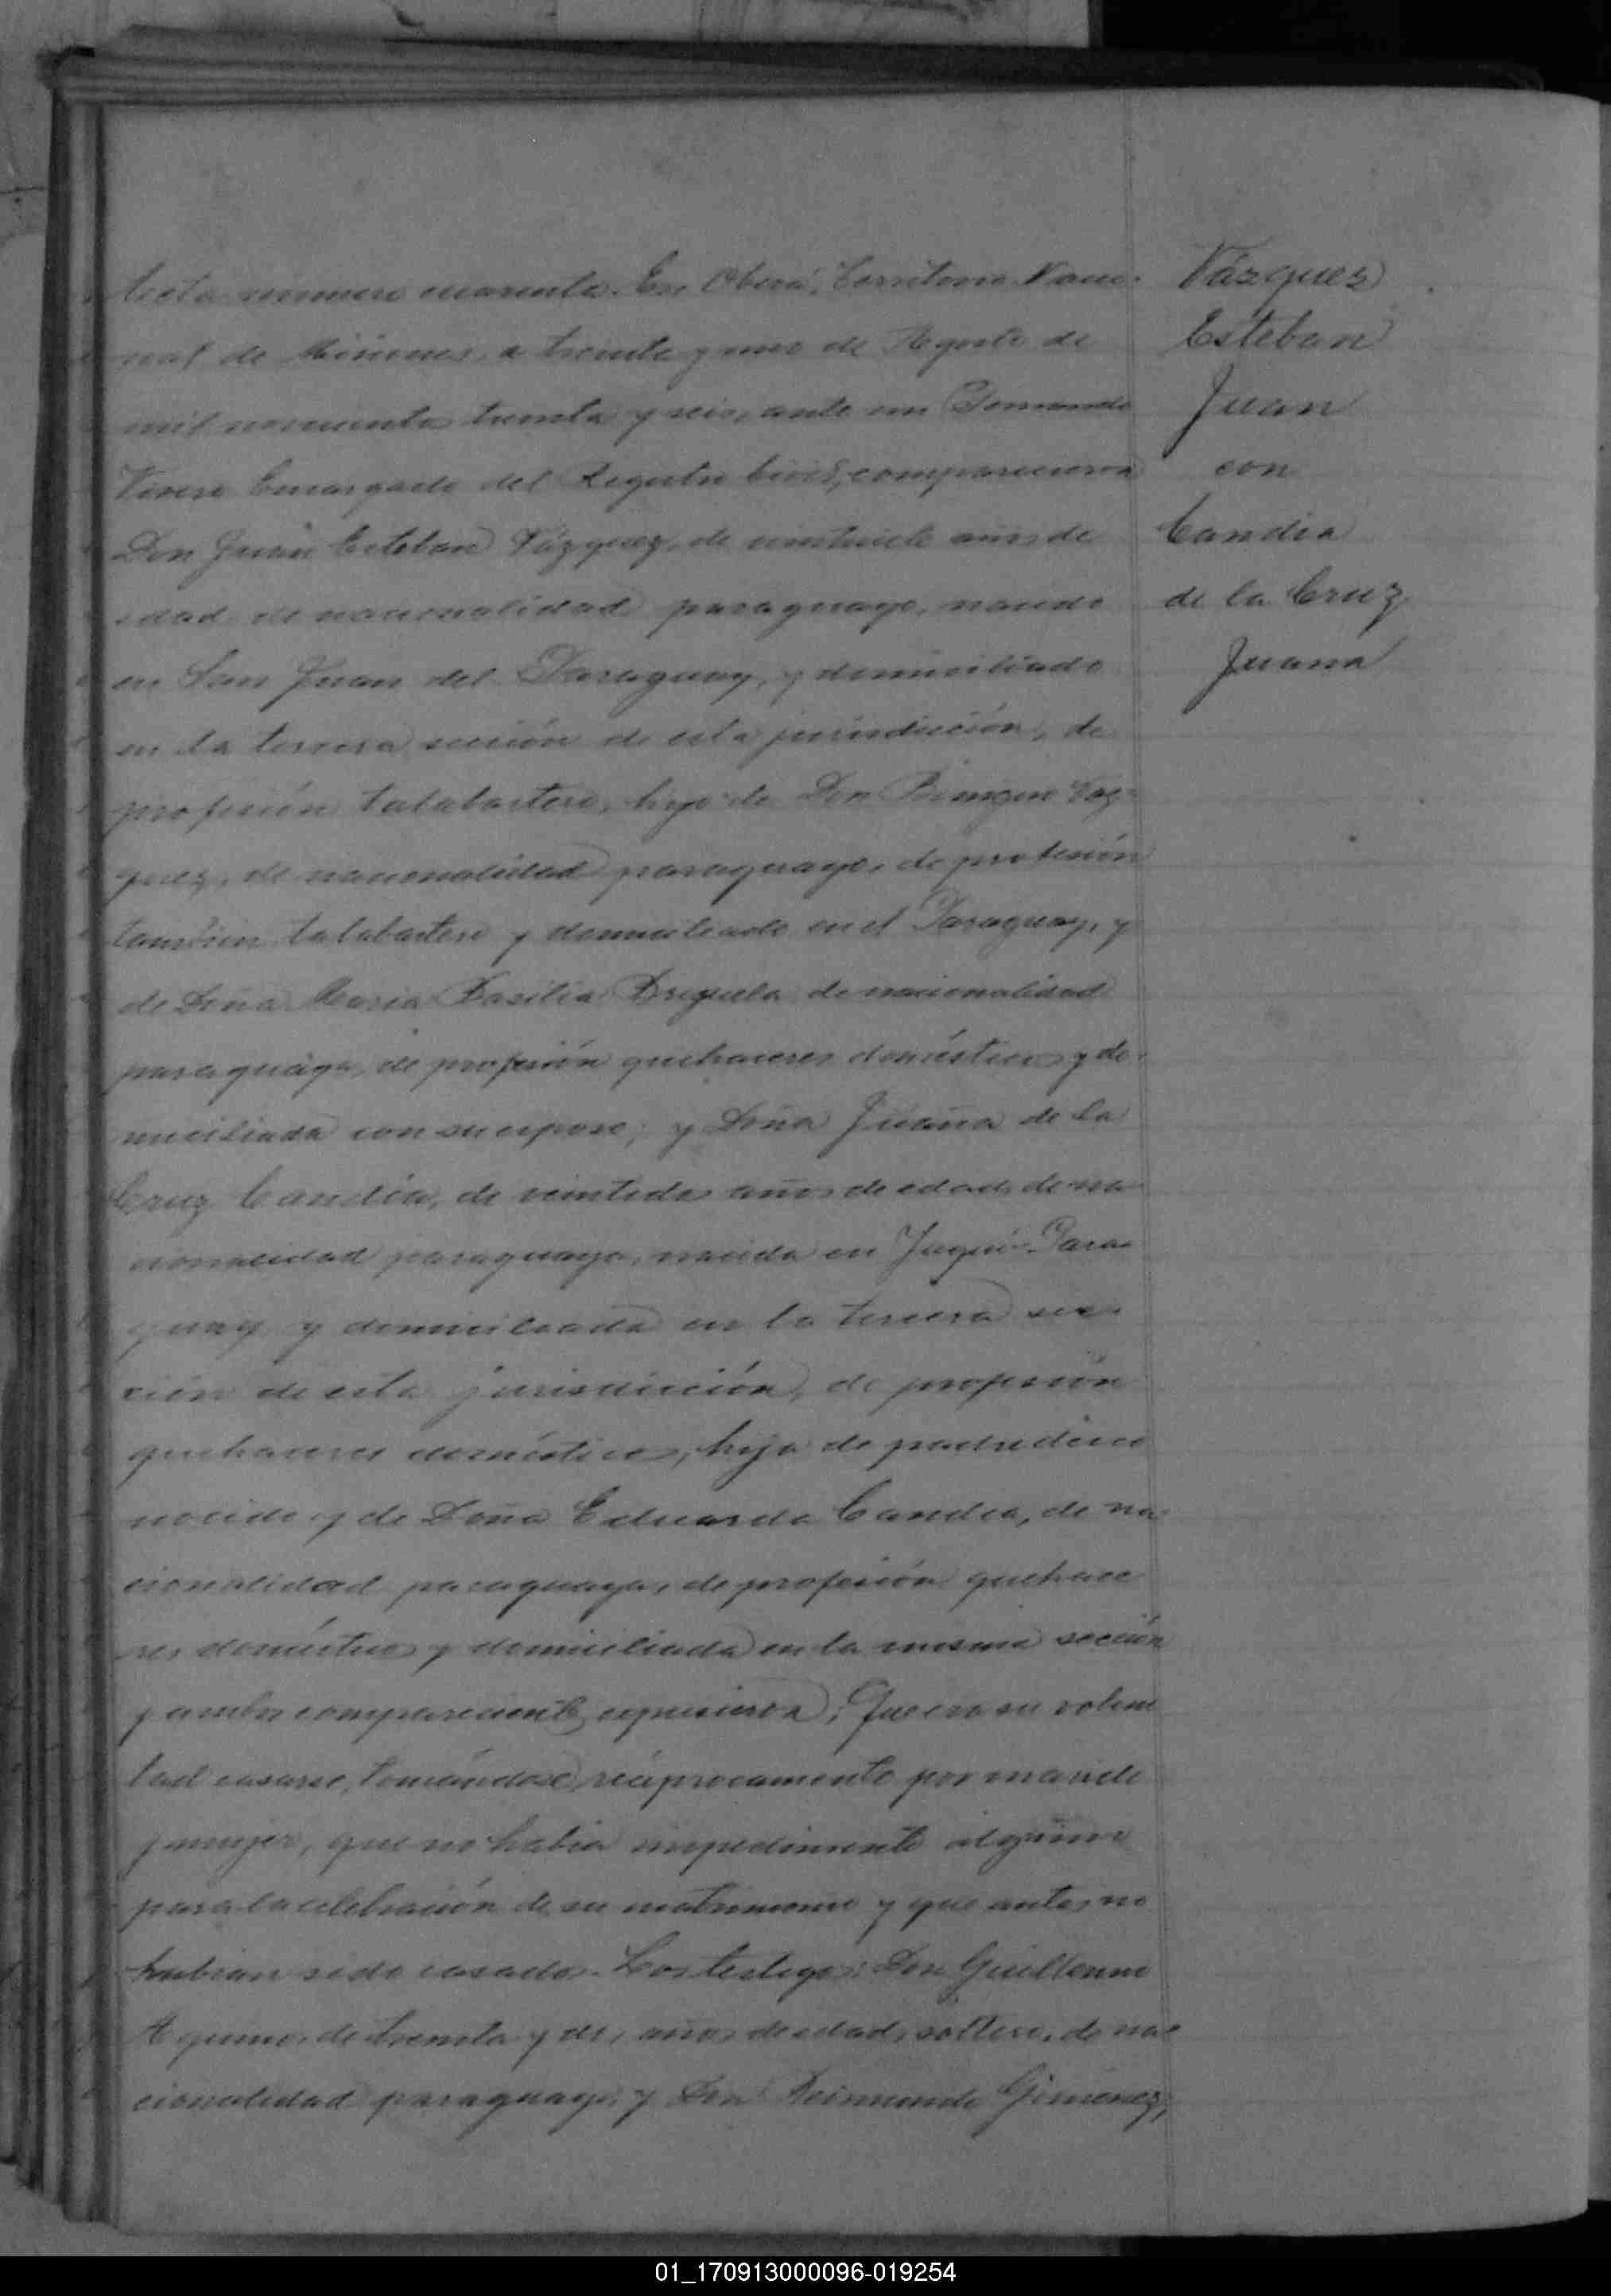 Acta número cuarenta. En Oberá, Territorio Nacio-
nal de Misiones, a treinta y uno de Agosto de
mil novecientos treinta y seis, ante mi
Encargado del Registro Civil, comparecieron
Don Juan Esteban Vázquez, de veintisiete años de
edad, de nacionalidad paraguayo, nacido
en San Juan del Paraguay, y domiciliado
en la tercera sección de esta jurisdicción, de
profesión talabartero, hijo de Don Vaz-
quez, de nacionalidad paraguayo, de profesión
tambien talabartero y domiciliado en el Paraguay, y
de Doña Maria Basilia de nacionalidad
paraguaya, de profesión quehaceres domésticos y do-
miciliada con su esposo; y Doña Juana de la
Cruz Candia, de veintidos años de edad, de na-
cionalidad paraguaya, nacida en Para-
guay y domiciliada en la tercera sec-
ción de esta jurisdicción, de profesión
quehaceres domésticos, hija de padre desco
nocido y de Doña Eduarda Candia, de na-
cionalidad paraguaya, de profesión quehace
res domésticos y domiciliada en la misma sección
y ambos comparecientes expusieron: Que era su volun
tad casarse, tomándose recíprocamente por marido
y mujer, que no habia impedimento alguno
para la celebración de su matrimonio y que antes no
habian sido casados. Los testigos: Don Guillermo
Aquino, de treinta y dos años de edad, soltero, de na-
cionalidad paraguayo, y Don Reimundo Giménez,
Vázquez
Esteban
Juan
con
Candia
de la Cruz
Juana
01_170913000096-019254